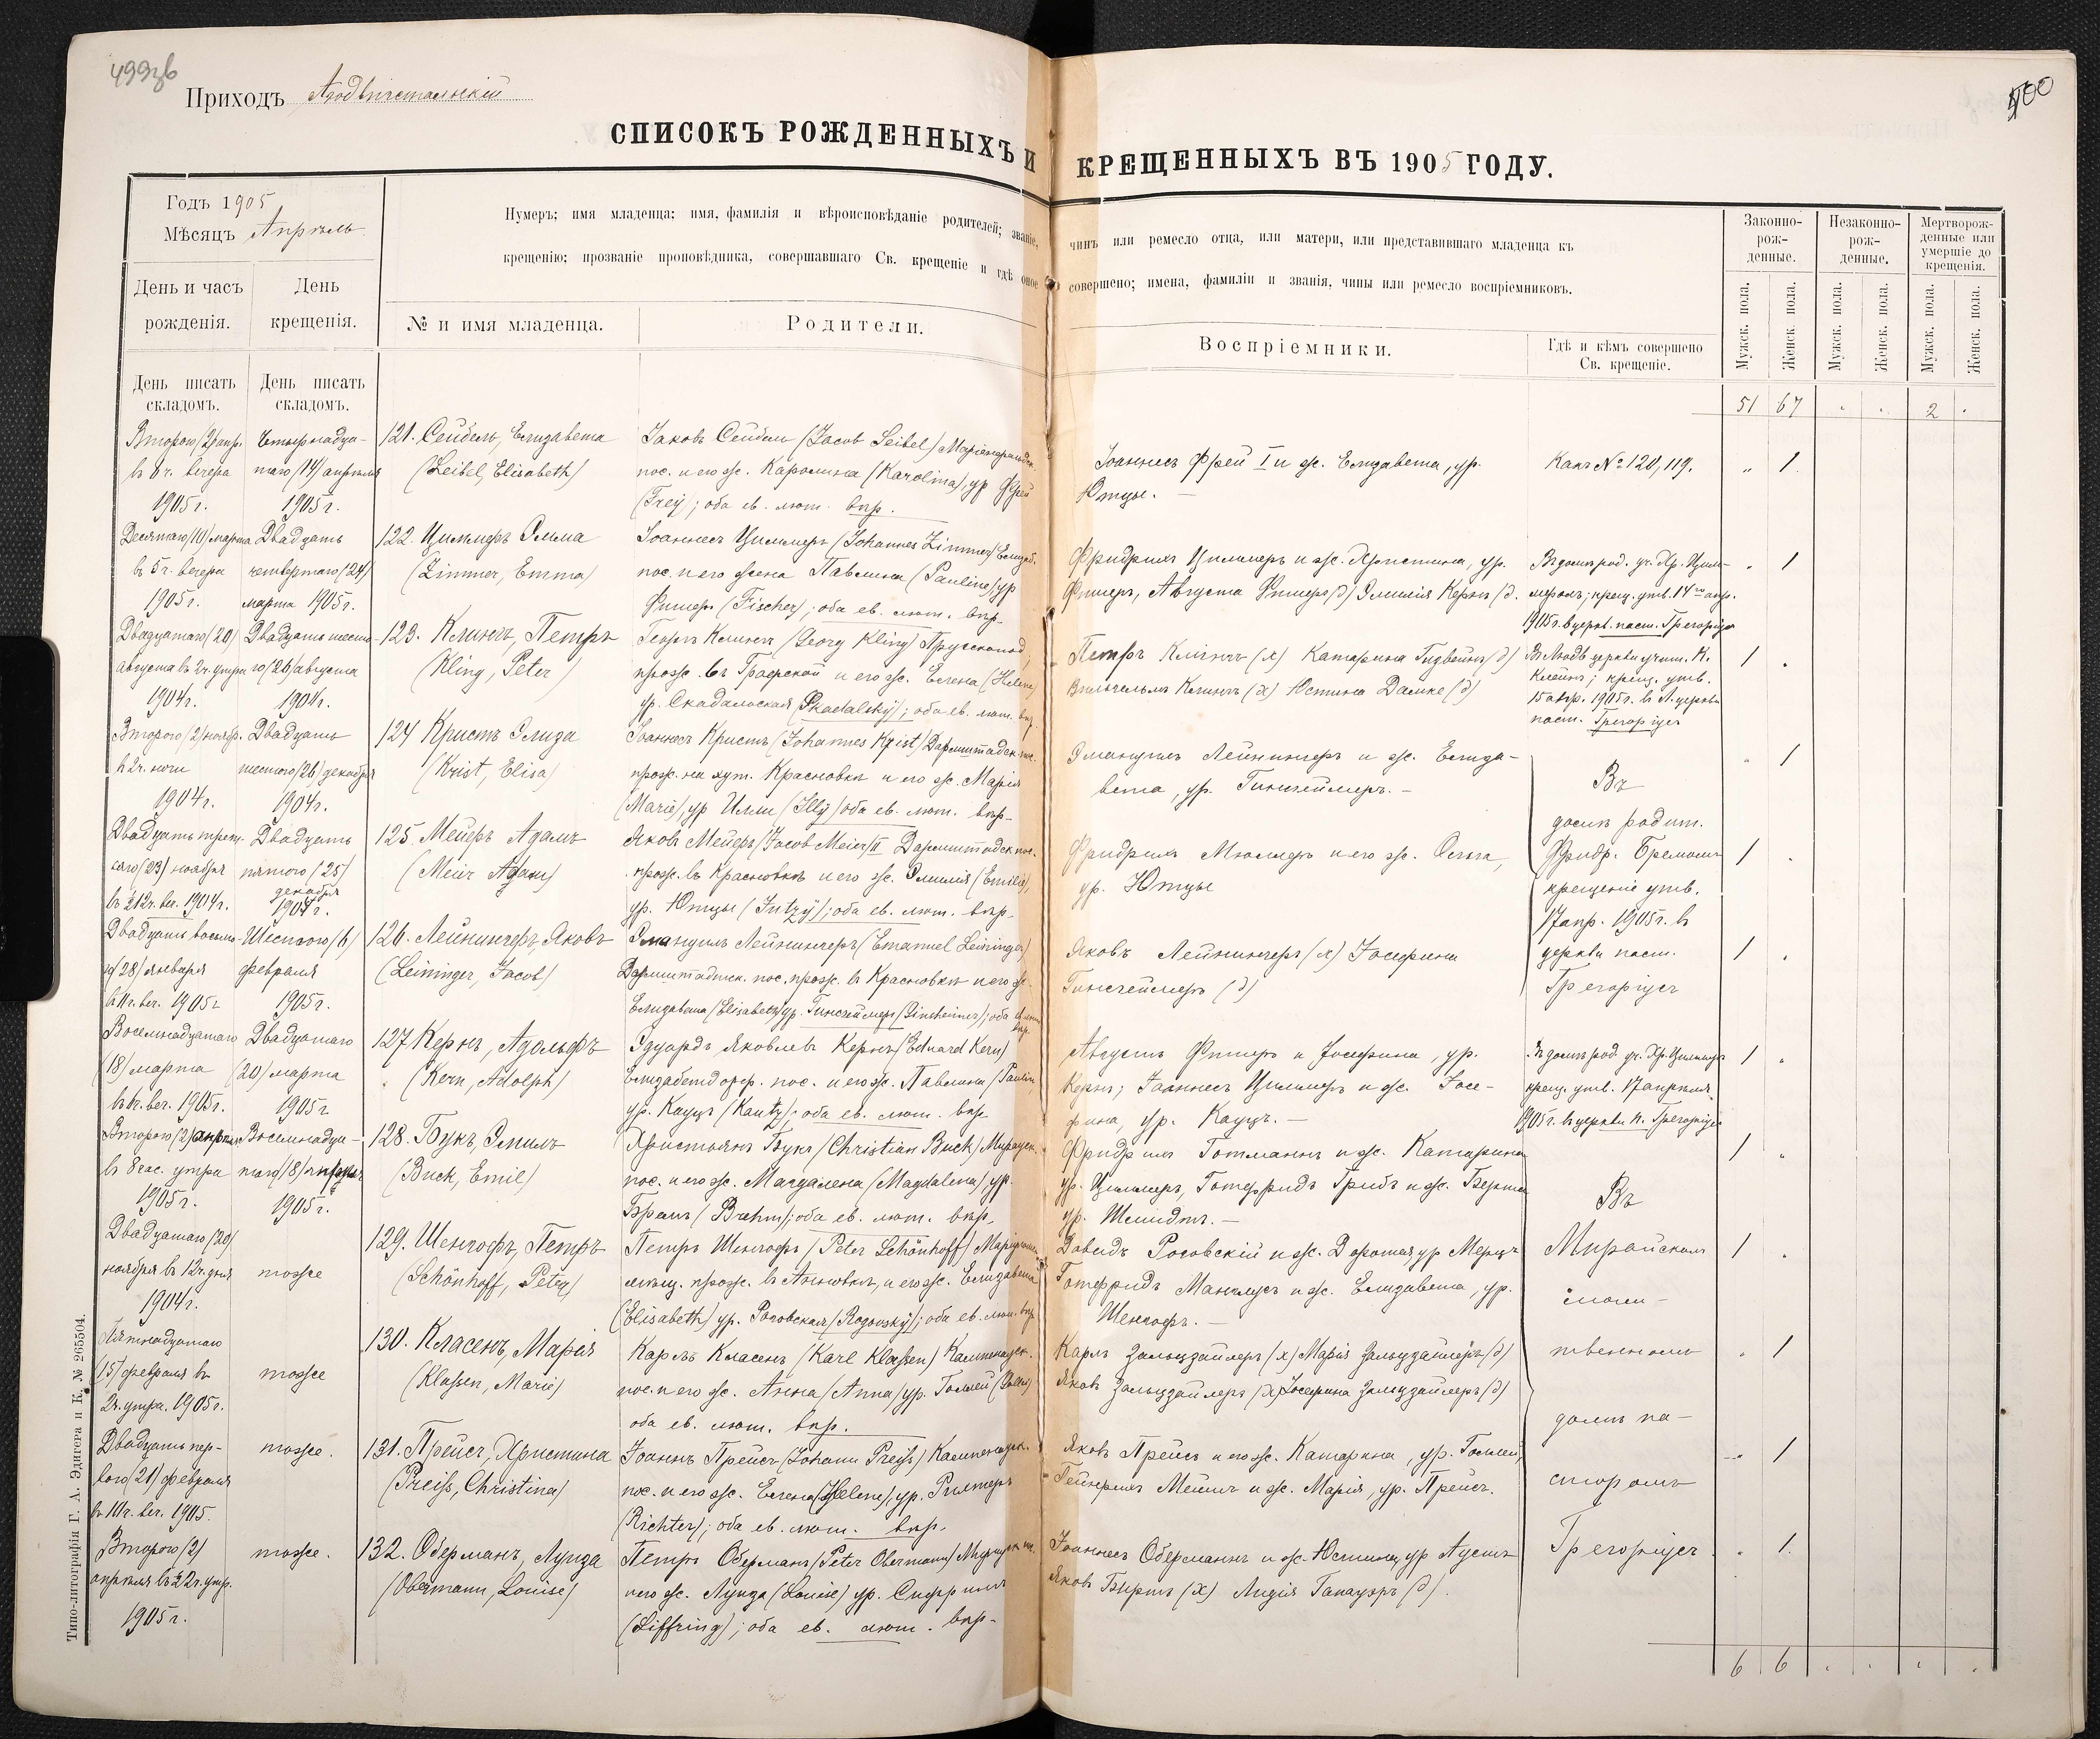 499зб
Приходъ
400
СПИСОКЪ РОЖДЕННЫХЪ И КРЕЩЕННЫХЪ ВЪ 1905 ГОДУ.
Годъ 1905
Мѣсяцъ Апрѣль
Нумеръ; имя младенца; имя, фамилія и вѣроисповѣданіе родителей; званіе, чинъ или ремесло отца, или матери, или представившаго младенца къ
крещенію; прозваніе проповѣдника, совершавшаго Св. крещеніе и гдѣ оное совершено; имена, фамиліи и званія, чины или ремесло воспріемниковъ.
Законно-
рож-
денные.
Незаконно-
рож-
денные.
Мертворож-
денные или
умершіе до
крещенія.
День и часъ
рожденія.
День
крещенія.
№ и имя младенца.
Родители.
Воспріемники.
Гдѣ и кѣмъ совершено
Св. крещеніе.
Мужск. пола.
Женск. пола.
Мужск. пола.
Женск. пола.
Мужск. пола.
Женск. пола.
День писать
складомъ.
День писать
складомъ.
51 67 . . 2 .
Второго (2) апр.
въ 6 ч. вечера
1905 г.
Четырнадца-
таго (14) апрѣля
1905 г.
121. Сейбель, Елизавета
(Seibel, Elisabeth)
Іаковъ Сейбель (Jacob Seibel)
пос. и его ж. Каролина (Karolina), ур. Фрей
(Frey); оба ев. лют. вѣр.
Іоаннесъ Фрей I и ж. Елизавета, ур.
Ютцы. —
Какъ № 120, 119.
" 1.
Десятаго (10) марта
въ 5 ч. вечера
1905 г.
Двадцать
четвертаго (24)
марта 1905 г.
122. Циммеръ Эмма
(Zimmer, Emma)
Іоаннесъ Циммеръ (Johannes Zimmer) Елизаб.
пос. и его жена Павлина (Pauline), ур
Фишеръ (Fischer); оба ев. лют. вѣр.
Фридрихъ Циммеръ и ж. Христина, ур.
Фишеръ, Августа Фишеръ (д) Эмилія Кернъ (д.
Въ домѣ род. уч. Хр. Цим-
меромъ; крещ. утв. 14го апр.
1905 г. въ церкв. паст. Грегоріусъ
. 1
Двадцатаго (20)
августа въ 2 ч. утра
1904 г.
Двадцать шеста-
го (26) августа
1904 г.
123. Клингъ, Петръ
(Kling, Peter)
Георгъ Клингъ (Georg Kling)
прож. въ Графской и его ж. Елена (Helene)
ур. Скадальская (Skadalsky); оба ев. лют. вѣр.
Петръ Клингъ (х) Катарина (д)
Вильгельмъ Клингъ (х) Юстина Дамке (д)
Въ Людв. церкви учит. К.
Клейнъ; крещ. утв.
15 апр. 1905 г. въ Л. церкви
паст. Грегоріусъ
1 .
Второго (2) ноябр.
въ 2 ч. ночи
1904 г.
Двадцать
шестого (26) декабря
1904 г.
124 Кристъ Элиза
(Krist, Elisa)
Іоаннесъ Кристъ (Johannes Krist) Дармштадск. пос.
прож. на хут. Красновкѣ и его ж. Марія
(Marie), ур Илли (Illy) оба ев. лют. вѣр.
Эмануилъ Лейнингеръ и ж. Елиза-
вета, ур. Гинсгеймеръ. —
Въ
домѣ родит.
" 1
Двадцать треть-
яго (23) ноября
въ 12 ч. веч. 1904 г.
Двадцать
пятого (25)
декабря
1904 г.
125. Мейеръ Адамъ
(Meier Adam)
Яковъ Мейеръ (Jacob Meier) II Дармштадск пос.
прож. въ Красновкѣ и его ж. Эмилія (Emilie),
ур. Ютцы (Jutzy); оба ев. лют. вѣр.
Фридрихъ Мюллеръ и его ж. Ольга,
ур. Ютцы
Фридр. Бремомъ
крещеніе утв.
17 апр. 1905 г. въ
1 .
Двадцать восьмо-
го (28) января
въ 11 ч. веч. 1905 г
Шестого (6)
февраля
1905 г.
126. Лейнингеръ, Яковъ
(Leininger, Jacob)
Эмануилъ Лейнингеръ (Emanuel Leininger)
Дармштадтск. пос. прож. въ Красновкѣ и его ж.
Елизавета (Elisabeth) ур. Гинсгеймеръ (Ginsheimer); оба ев. лют. вѣр.
Яковъ Лейнингеръ (х) Іозефина
Гинсгеймеръ (д)
церкви паст.
Грегоріусъ
1 .
Восемнадцатаго
(18) марта
въ 6 ч. веч. 1905 г.
Двадцатаго
(20) марта
1905 г
127 Кернъ, Адольфъ
(Kern, Adolph)
Эдуардъ Яковлевъ Кернъ (Eduard Kern)
Елизабетдорф. пос. и его ж. Павлина (Paulin
ур. Кауцъ (Kautz); оба ев. лют. вѣр.
Августъ Фишеръ и Іозефина, ур.
Кернъ; Іоаннесъ Циммеръ и ж. Іозе-
фина, ур. Кауцъ. —
Въ домѣ род. уч. Хр. Циммеръ
крещ. утв. 17 апрѣля
1905 г. въ церкви п. Грегоріусъ
1 .
Второго (2) апрѣля
въ 8 час. утра
1905 г.
Восемнадца-
таго (18) апрѣля
1905 г.
128. Букъ, Эмиль
(Buck, Emil)
Христьянъ Букъ (Christian Buck)
пос. и его ж. Магдалена (Magdalena), ур.
Бремъ (Brehm); оба ев. лют. вѣр.
Фридрихъ Готманнъ и ж. Катарина
ур. Циммеръ, Готфридъ Грибъ и ж. Берта
ур. Шмидтъ. —
Въ
1 .
Двадцатаго (20)
ноября въ 12 ч. дня
1904 г.
тоже
129. Шенгофъ, Петръ
(Schönhoff, Peter)
Петръ Шенгофъ (Peter Schönhoff)
прож. въ и его ж. Елизавета
(Elisabeth) ур. Роговская (Rogovsky); оба ев. лют. вѣр
Давидъ Роговскій и ж. Доротея ур Мерцъ
Готфридъ Манглусъ и ж. Елизавета, ур.
Шенгофъ. —
Мирайскомъ
моли-
1 .
Пятнадцатаго
(15) февраля въ
2 ч. утра. 1905 г.
тоже
130. Класенъ, Марія
(Klassen, Marie)
Карлъ Класенъ (Karl Klassen) Кампенауск.
пос. и его ж. Анна (Anna) ур.
оба ев. лют. вѣр.
Карлъ Зальцзайлеръ (х) Марія Зальцзайлеръ (д)
Яковъ Зальцзайлеръ (х) Іозефина Зальцзайлеръ (д)
твенномъ
домѣ па-
. 1
Двадцать пер-
вого (21) февраля
въ 10 ч. веч. 1905.
тоже.
131. Прейсъ, Христина
(Preiß, Christina)
Іоаннъ Прейсъ (Johann Preiß) Кампенауск.
пос. и его ж. Елена (Helene), ур. Рихтеръ
(Richter); оба ев. лют. вѣр.
Яковъ Прейсъ и его ж. Катарина, ур.
Гейнрихъ и ж. Марія, ур. Прейсъ.
сторомъ
" 1
Второго (2)
апрѣля въ 2 ч. утр.
1905 г.
тоже.
132. Оберманъ, Луиза
(Obermann, Louise)
Петръ Оберманъ (Peter Obermann)
и его ж. Луиза (Louise) ур. Сифрингъ
(Siffring); оба ев. лют. вѣр.
Іоаннесъ Оберманнъ и ж. Юстина, ур Аустъ
Яковъ Биртъ (х) Лидія Ганауэръ (д).
Грегоріусъ
" 1.
6 6 . . . .
Типо-литографія Г. А. Эдигера и К. № 265504.